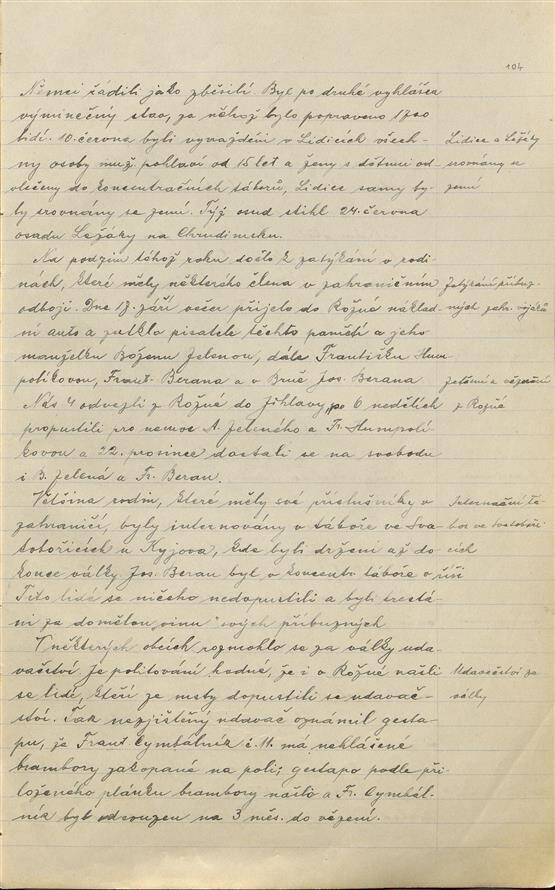 104
Němci řádili jako zběsilí. Byl po druhé vyhlášen
výminečný stav, za něhož bylo popraveno 1700
lidí. 10. června byli vyvražděni v Lidicích všech-
ny osoby muž. pohlaví od 15 let a ženy s dětmi od-
vlečeny do koncentračních táborů, Lidice samy by-
ly srovnány se zemí. Týž osud stihl 24. června
osadu Ležáky na Chrudimsku.
Lidice a Ležáky
srovnány se
zemí
Na podzim téhož roku došlo k zatýkání v rodi-
nách, které měly některého člena v zahraničním
odboji. Dne 17. září večer přijelo do Rožné náklad-
ní auto a zatklo pisatele těchto pamětí a jeho
manželku Boženu Jelenou, dále Františku Hum-
políkovou, Frant. Berana a v Brně Jos. Berana.
Nás 4 odvezli z Rožné do Jihlavy, po 6 nedělích
propustili pro nemoc A. Jeleného a Fr. Humpolí-
kovou a 22. prosince dostali se na svobodu
i B. Jelená a Fr. Beran.
Zatýkání příbuz-
ných zahr. vojáků
Jelení a věznění
z Rožné
Většina rodin, které měly své příslušníky v
zahraničí, byly internovány v táboře ve Sva-
tobořicích u Kyjova, kde byli drženi až do
konce války. Jos. Beran byl v koncentr. táboře v říši
Tito lidé se ničeho nedopustili a byli trestá-
ni za domělou vinu svých příbuzných
Internační tá-
bor ve Svatoboři-
cích
V některých obcích rozmohlo se za války uda-
vačství. Je politování hodné, že i v Rožné našli
se lidé, kteří ze msty dopustili se udavač-
ství. Tak nezjištěný udavač oznámil gesta-
pu, že Frant. Cymbálník č. 11. má nehlášené
brambory zakopané na poli; gestapo podle při-
loženého plánku brambory našlo a Fr. Cymbál-
ník byl odsouzen na 3 měs. do vězení.
Udavačství za
války